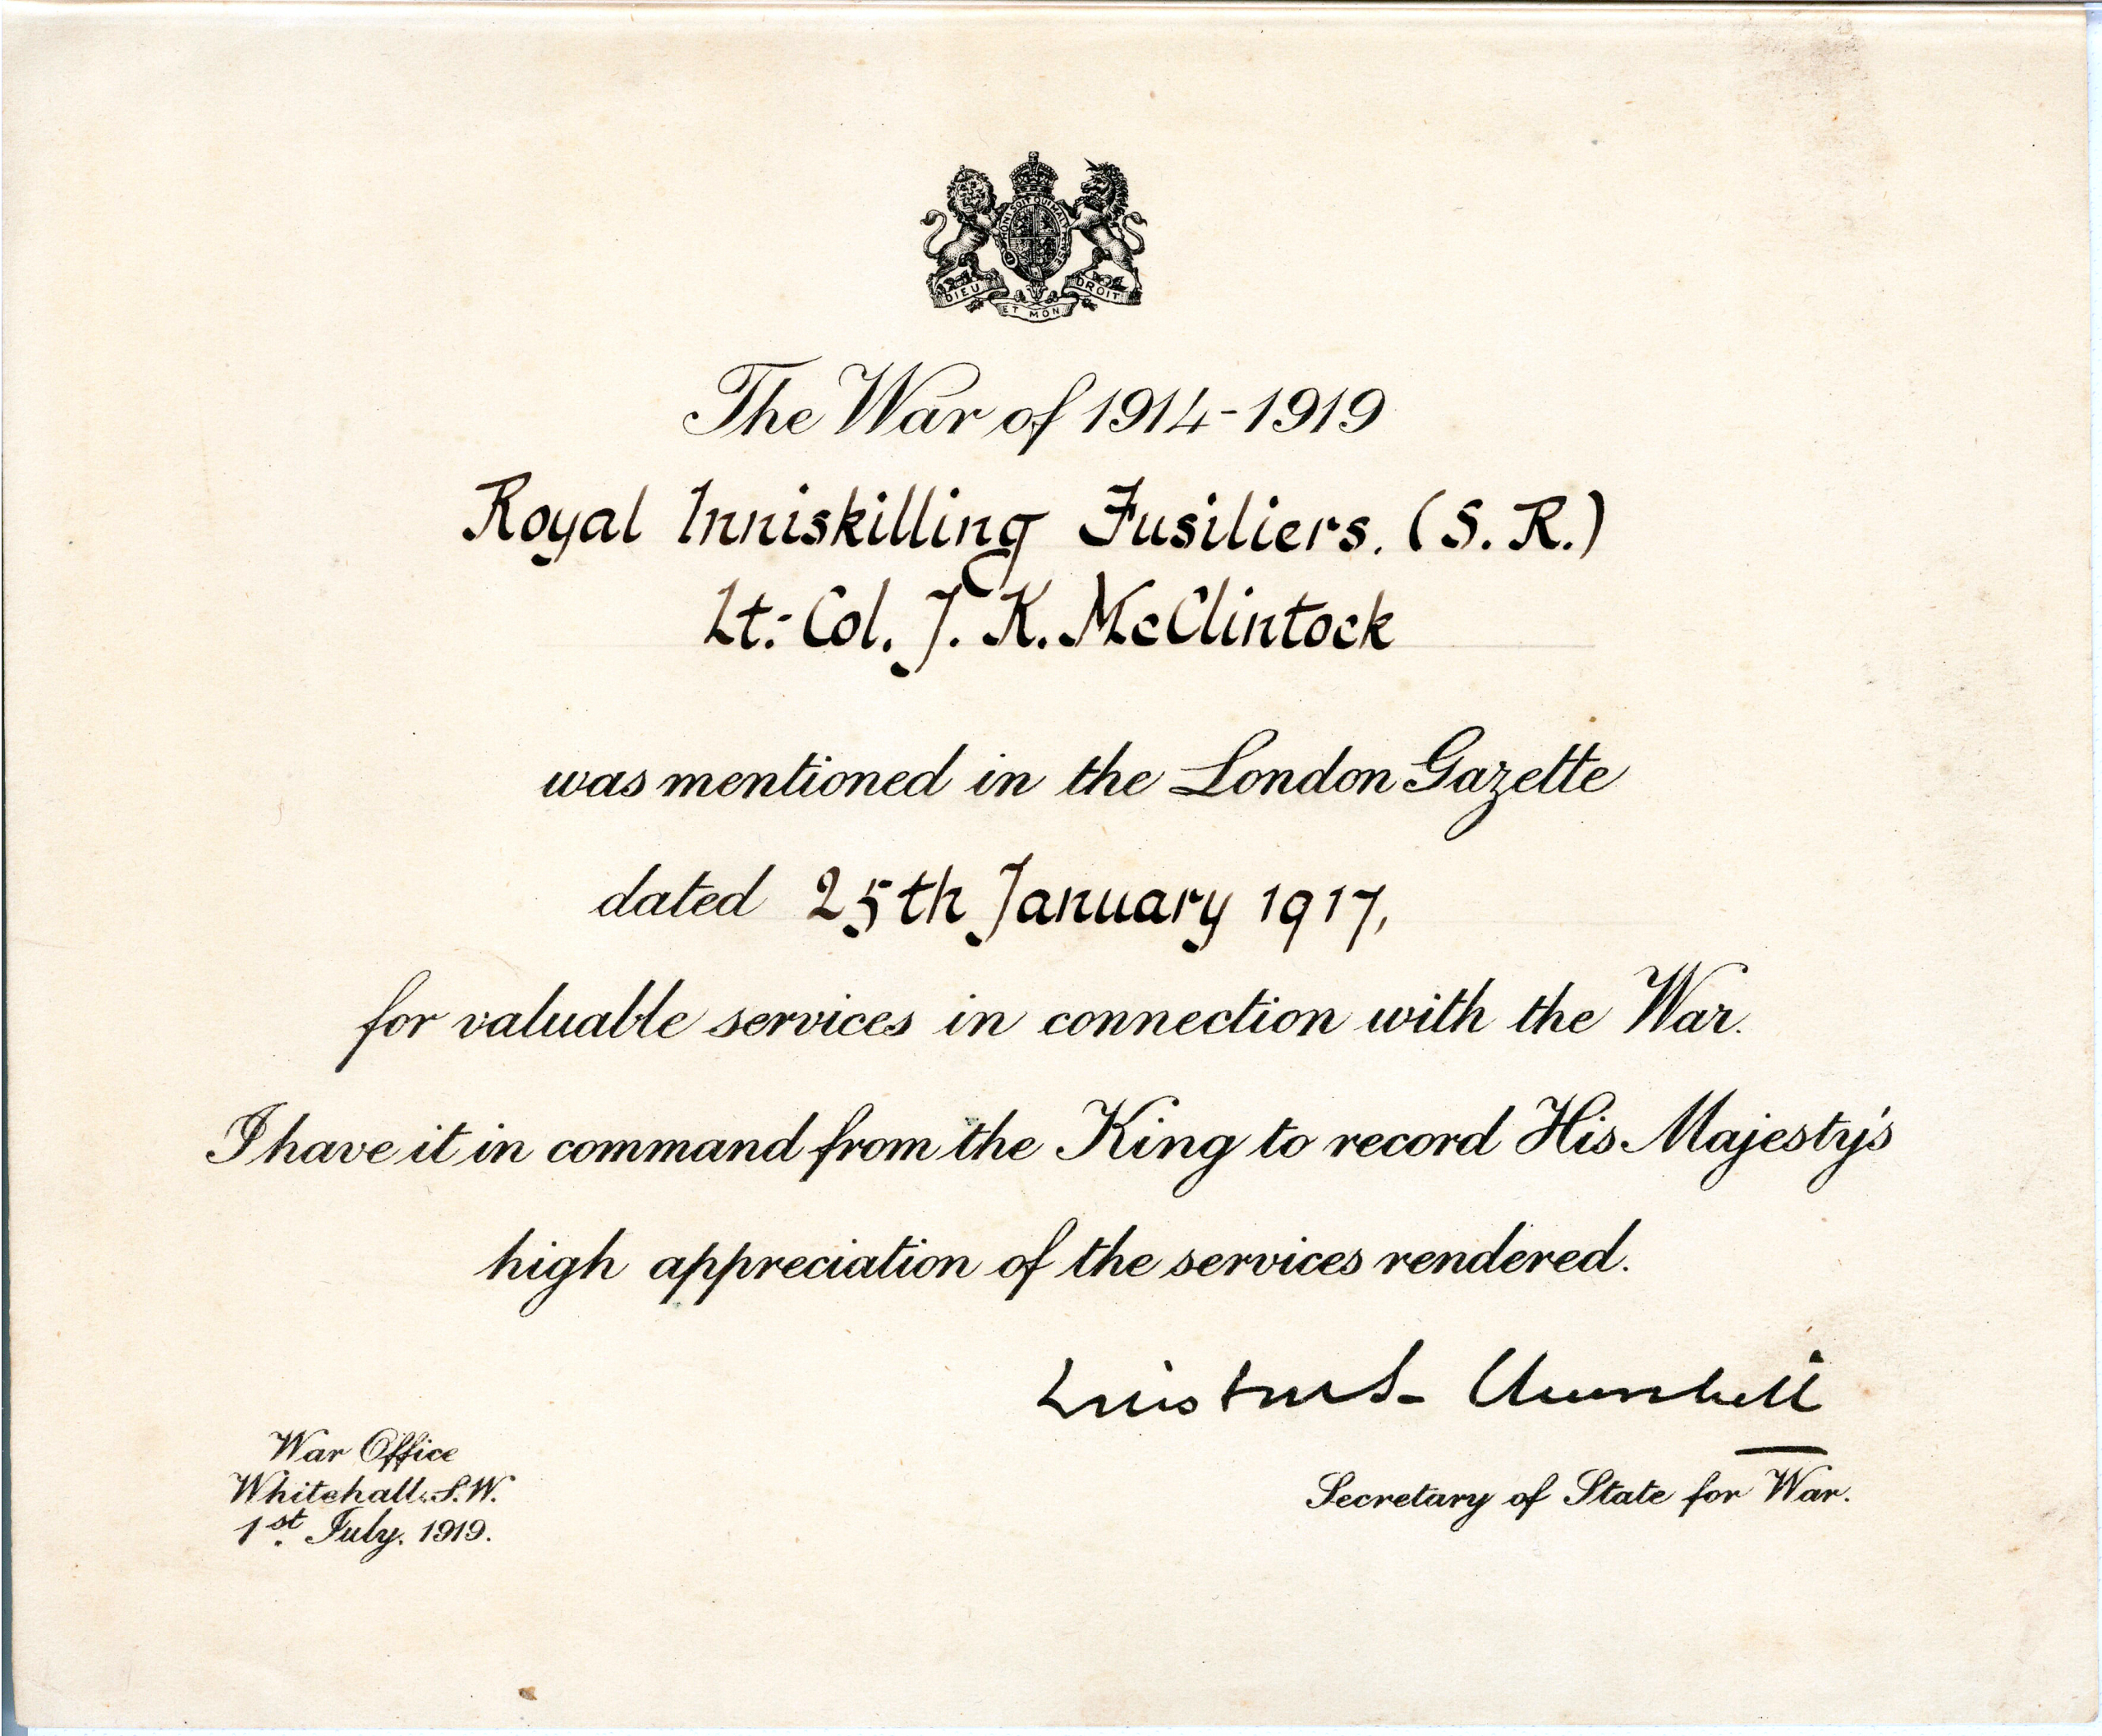 HONI SOIT QUI MAL Y PENSE
DIEU ET MON DROIT
The War of 1914-1919
Royal Inniskilling Fusiliers. (S. R.)
Lt:-Col. J. K. McClintock
was mentioned in the London Gazette
dated 25th January 1917,
for valuable services in connection with the War.
I have it in command from the King to record His Majesty's
high appreciation of the services rendered.
Winston S. Churchill
War Office
Whitehall, S.W.
1st July, 1919.
Secretary of State for War.